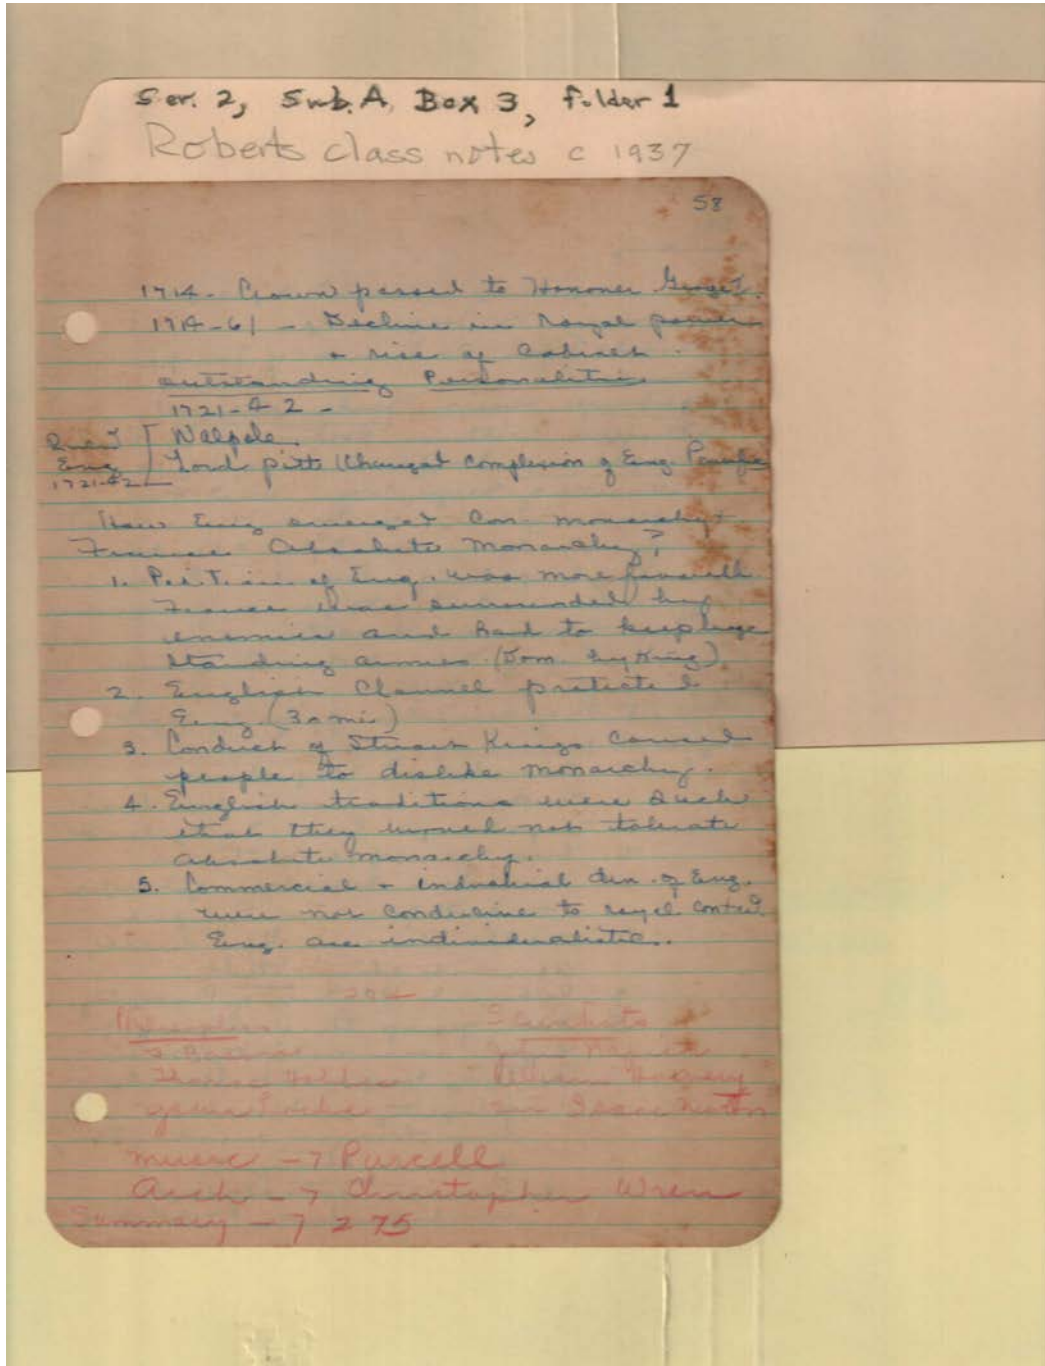 Ser. 2, Sub. A, Box 3, folder 1
Roberts class notes c 1937
58
1714 - Crown passed to Hanover George I.
1714-61 - Decline in royal power
+ rise of Cabinet.
outstanding Personalities
1721-42 -
Walpole
Eng
1721-42
Lord Pitt (Changed complexion of Eng.
How Eng emerged Con. monarchy +
France Absolute Monarchy?
1. Position of Eng. was more
France was surrounded by
enemies and had to keep large
standing armies. (Dom. by King)
2. English Channel protected
Eng. (30 mi)
3. Conduct of Stuart Kings caused
people to dislike monarchy.
4. English traditions were such
that they would not tolerate
absolute monarchy.
5. Commercial + industrial dev. of Eng.
were not to royal control
Eng. are individualistic.
274
Philosophers
Scientists
F. Bacon
John Napier
Thomas Hobbes
William Harvey
John Locke
Sir Isaac Newton
music -> Purcell
Arch -> Christopher Wren
Summary -> 275